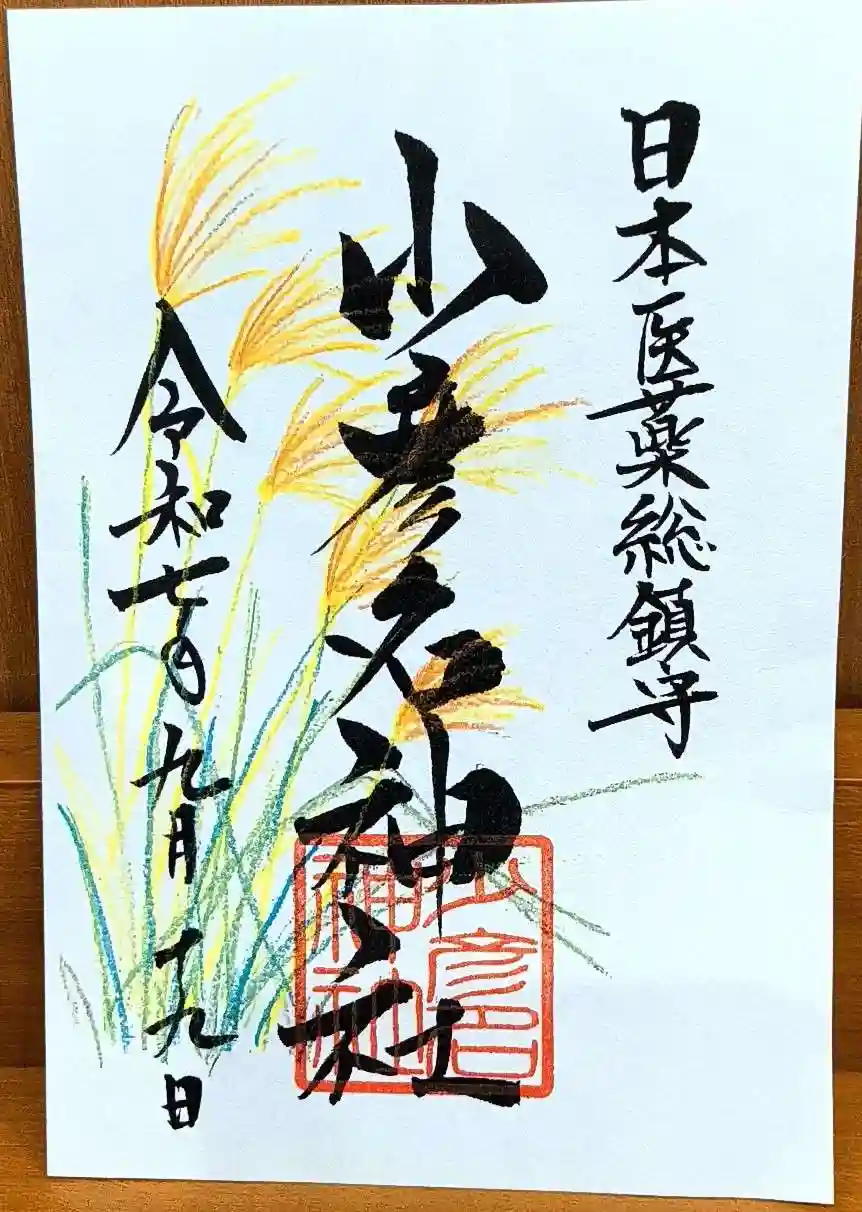 日本医薬総鎮守
少彦名神社
少彦名
神社
令和七年九月十九日